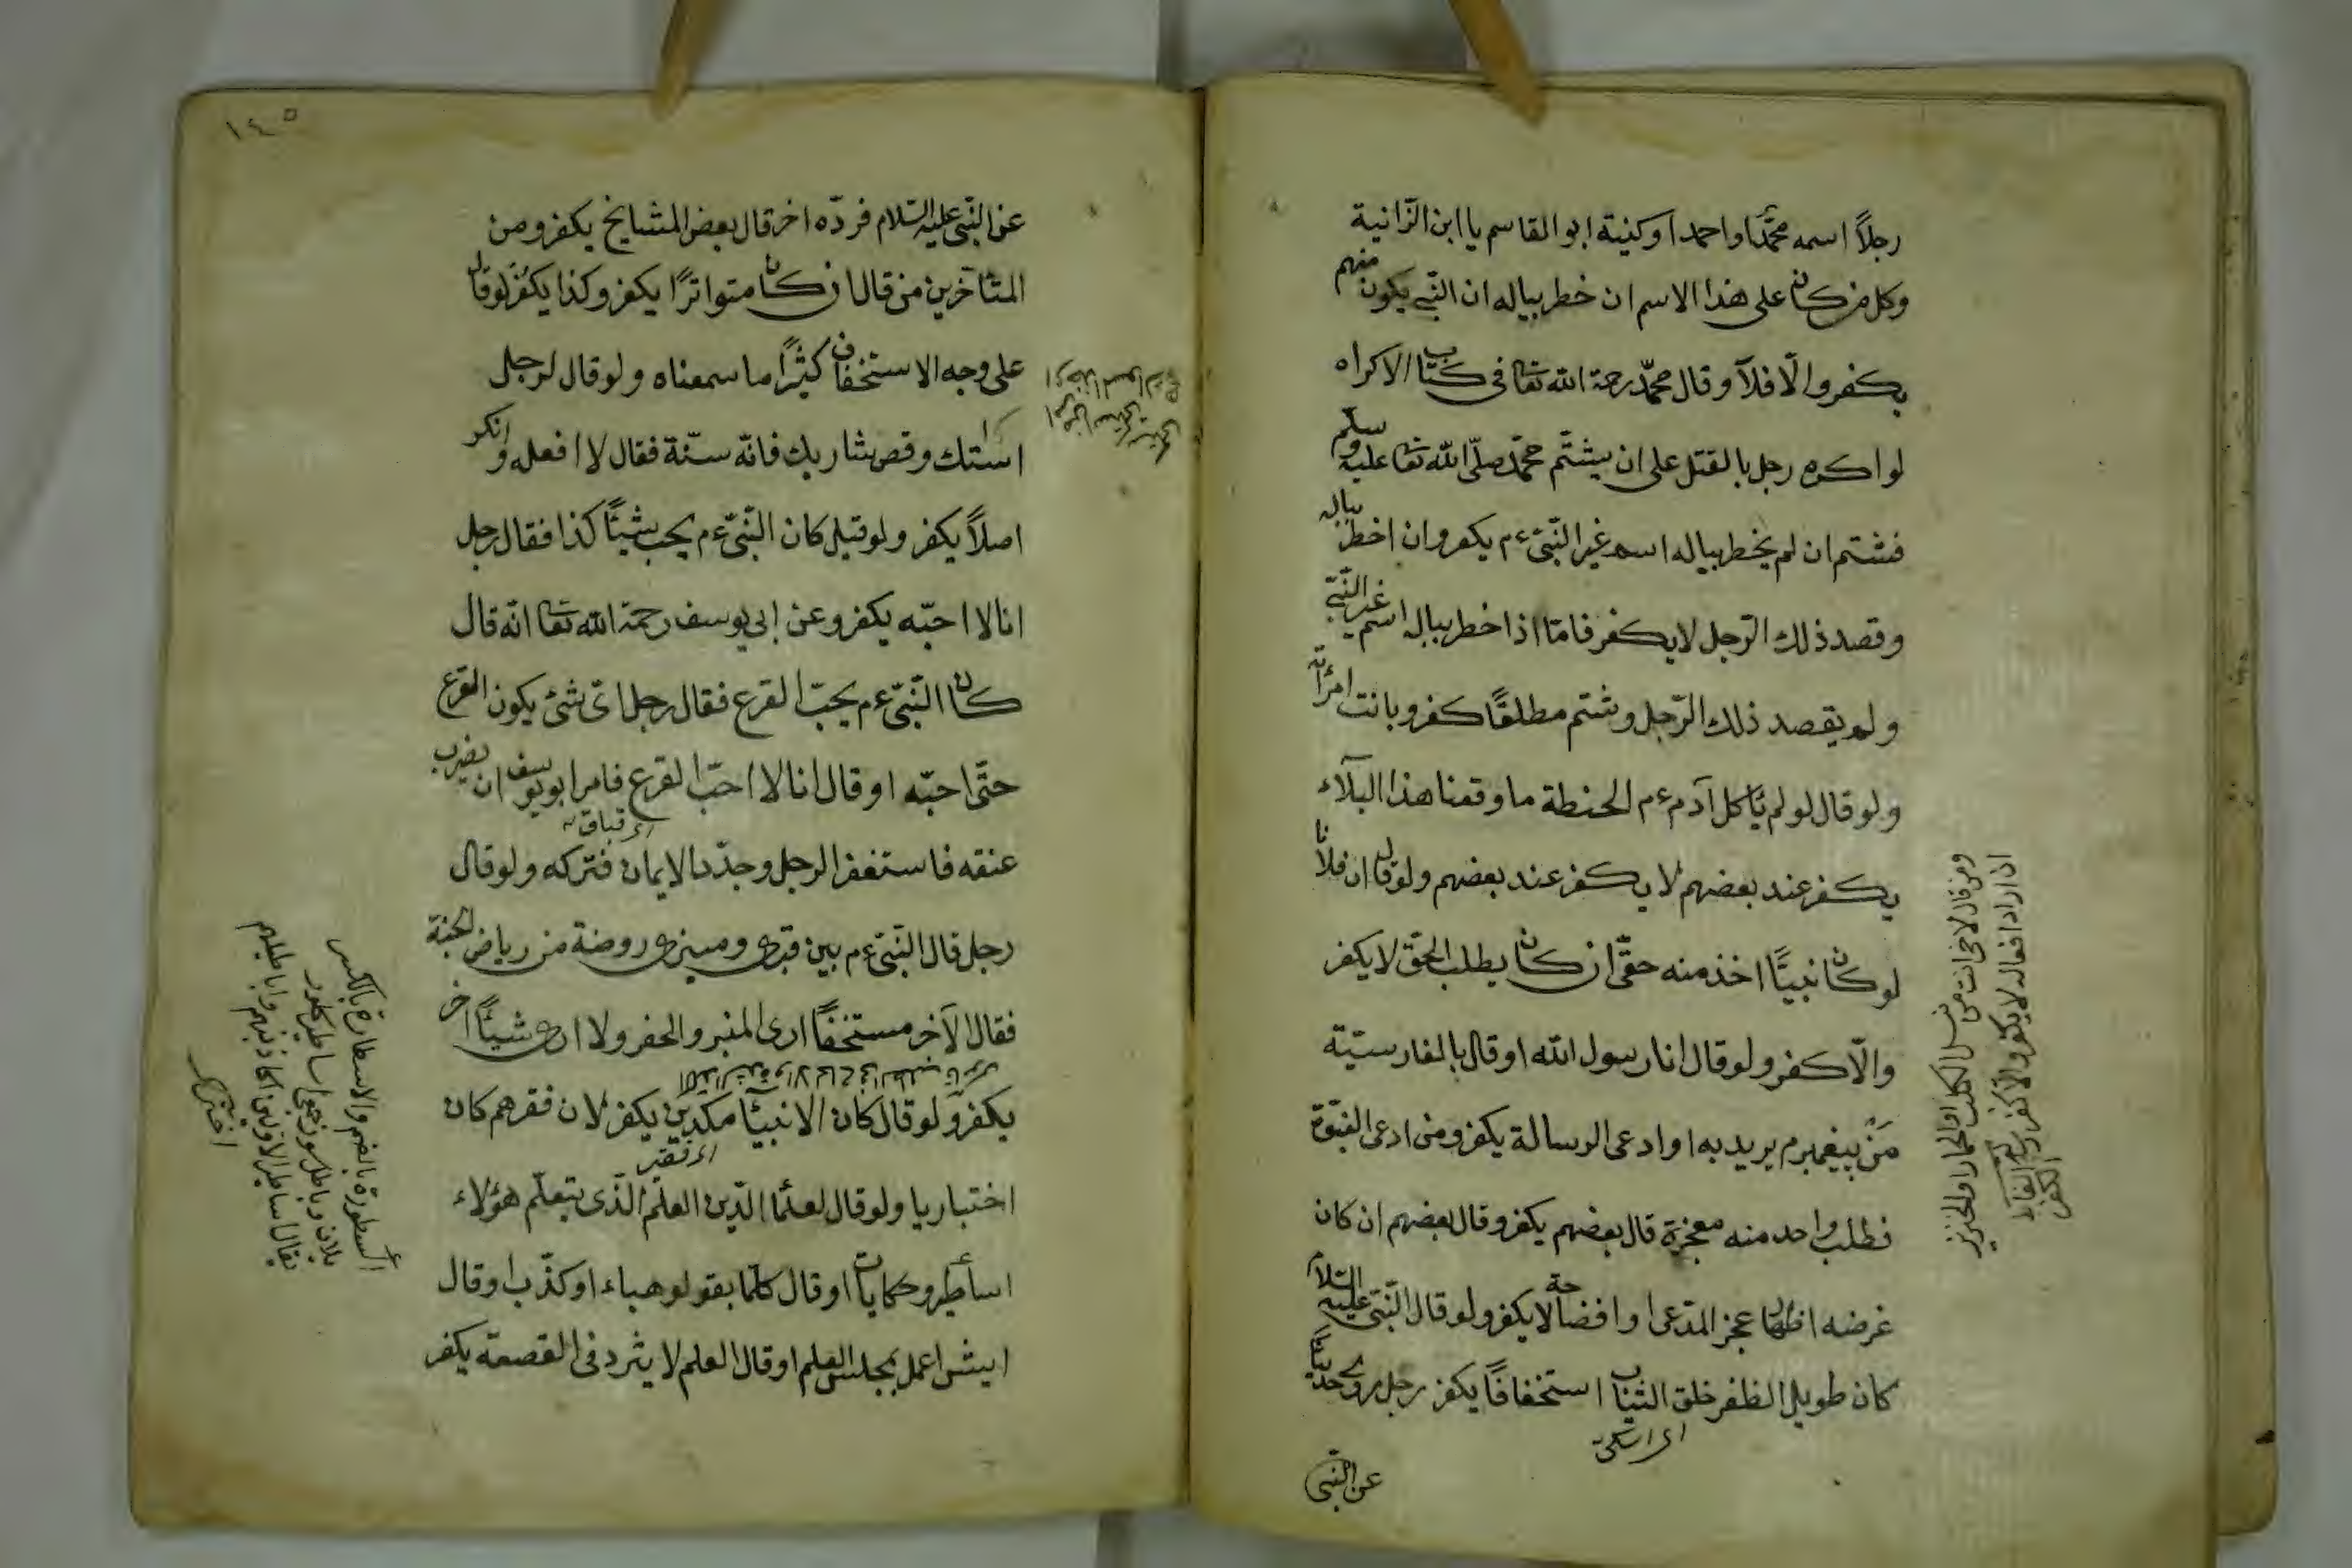 رجلاً اسمه محمّدا او احمد او كنية ابو القاسم يا ابن الزّانية
وكل من كان على هذا الاسم ان خطر بباله ان النّبي يكون منهم
يكفر والّا فلا وقال محمّد رحمة الله تعا فى كتاب الاكراه
لو اكره رجل بالقتل على ان يشتم محمّد صلّى الله تعا عليه وسلّم
فشتم ان لم يخطر بباله اسم غير النّبىّ ءم يكفر وان اخطر بباله
وقصد ذلك الرّجل لا يكفر فامّا اذا خطر بباله اسم غير النّبىّ
ولم يقصد ذلك الرّجل وشتم مطلقًا كفر وبانت امرأته
ولو قال لو لم يأكل آدم ءم الحنطة ما وقعنا هذا البلآء
يكفر عند بعضهم لا يكفر عند بعضهم ولو قال ان فلانا
لو كان نبيًّا اخذ منه حقّى ان كان يطلب الحقّ لا يكفر
والّا كفر ولو قال انا رسول الله او قال بالفارسيّة
مَنْ پيغمبرم يريد به او ادعى الرسالة يكفر ومن ادعى النبّوة
فطلب واحد منه معجزة قال بعضهم يكفر وقال بعضهم ان كان
غرضه اظهار عجز المدّعى او افضاحة لا يكفر ولو قال النّبىّ عليه السّلام
كان طويل الظفر خلق الثياب استخفافًا يكفر رجل روى حديثًا
اى اسكى
عن النّبى
ومن قال لاخر انت من نسل الكلب او الحمار او الخنزير
ان اراد افعاله لا يكفر والّا كفر
الفاظ الكفر
١٤٥
عن النّبىّ عليه السّلام فردّه اخر قال بعض المشايخ يكفر ومن
المتأخرين من قال ان كان متواترًا يكفر وكذا يكفر لو قال
على وجه الاستخفاف كثيرًا ما سمعناه ولو قال لرجل
استك وقص شاربك فانّه سنّة فقال لا افعله وانكر
اصلاً يكفر ولو قيل كان النّبىّ ءم يحب شيئًا كذا فقال رجل
انا لا احبّه يكفر وعن ابى يوسف رحمة الله تعا انّه قال
كان النّبىّ ءم يحبّ القرع فقال رجل اىّ شئ يكون القرع
حتّى احبّه او قال انا لا احبّ القرع فامر ابو يوسف ان يضرب
عنقه فاستغفر الرجل وجدّد الايمان فتركه ولو قال
رجل قال النّبىّ ءم بين قبرى ومنبرى روضة من رياض الجنة
فقال الآخر مستخفًا ارى المنبر والحفر ولا ارى شيئًا اخر
يكفر ولو قال كان الانبيآء مكدين يكفر لان فقرهم كان
اى فقير
اختباريا ولو قال لعلماء الدّين العلم الّذى يتعلّم هؤلاء
اساطير وحكايات او قال كلّما يقولو هباء او كذّب او قال
ايش اعمل بمجلس العلم او قال العلم لا يثرد فى القصعة يكفر
أسطورة بالضم والاسطارة بالكسر
يقال اساطير الاولين اكاذيبهم واباطيلهم
اخترى